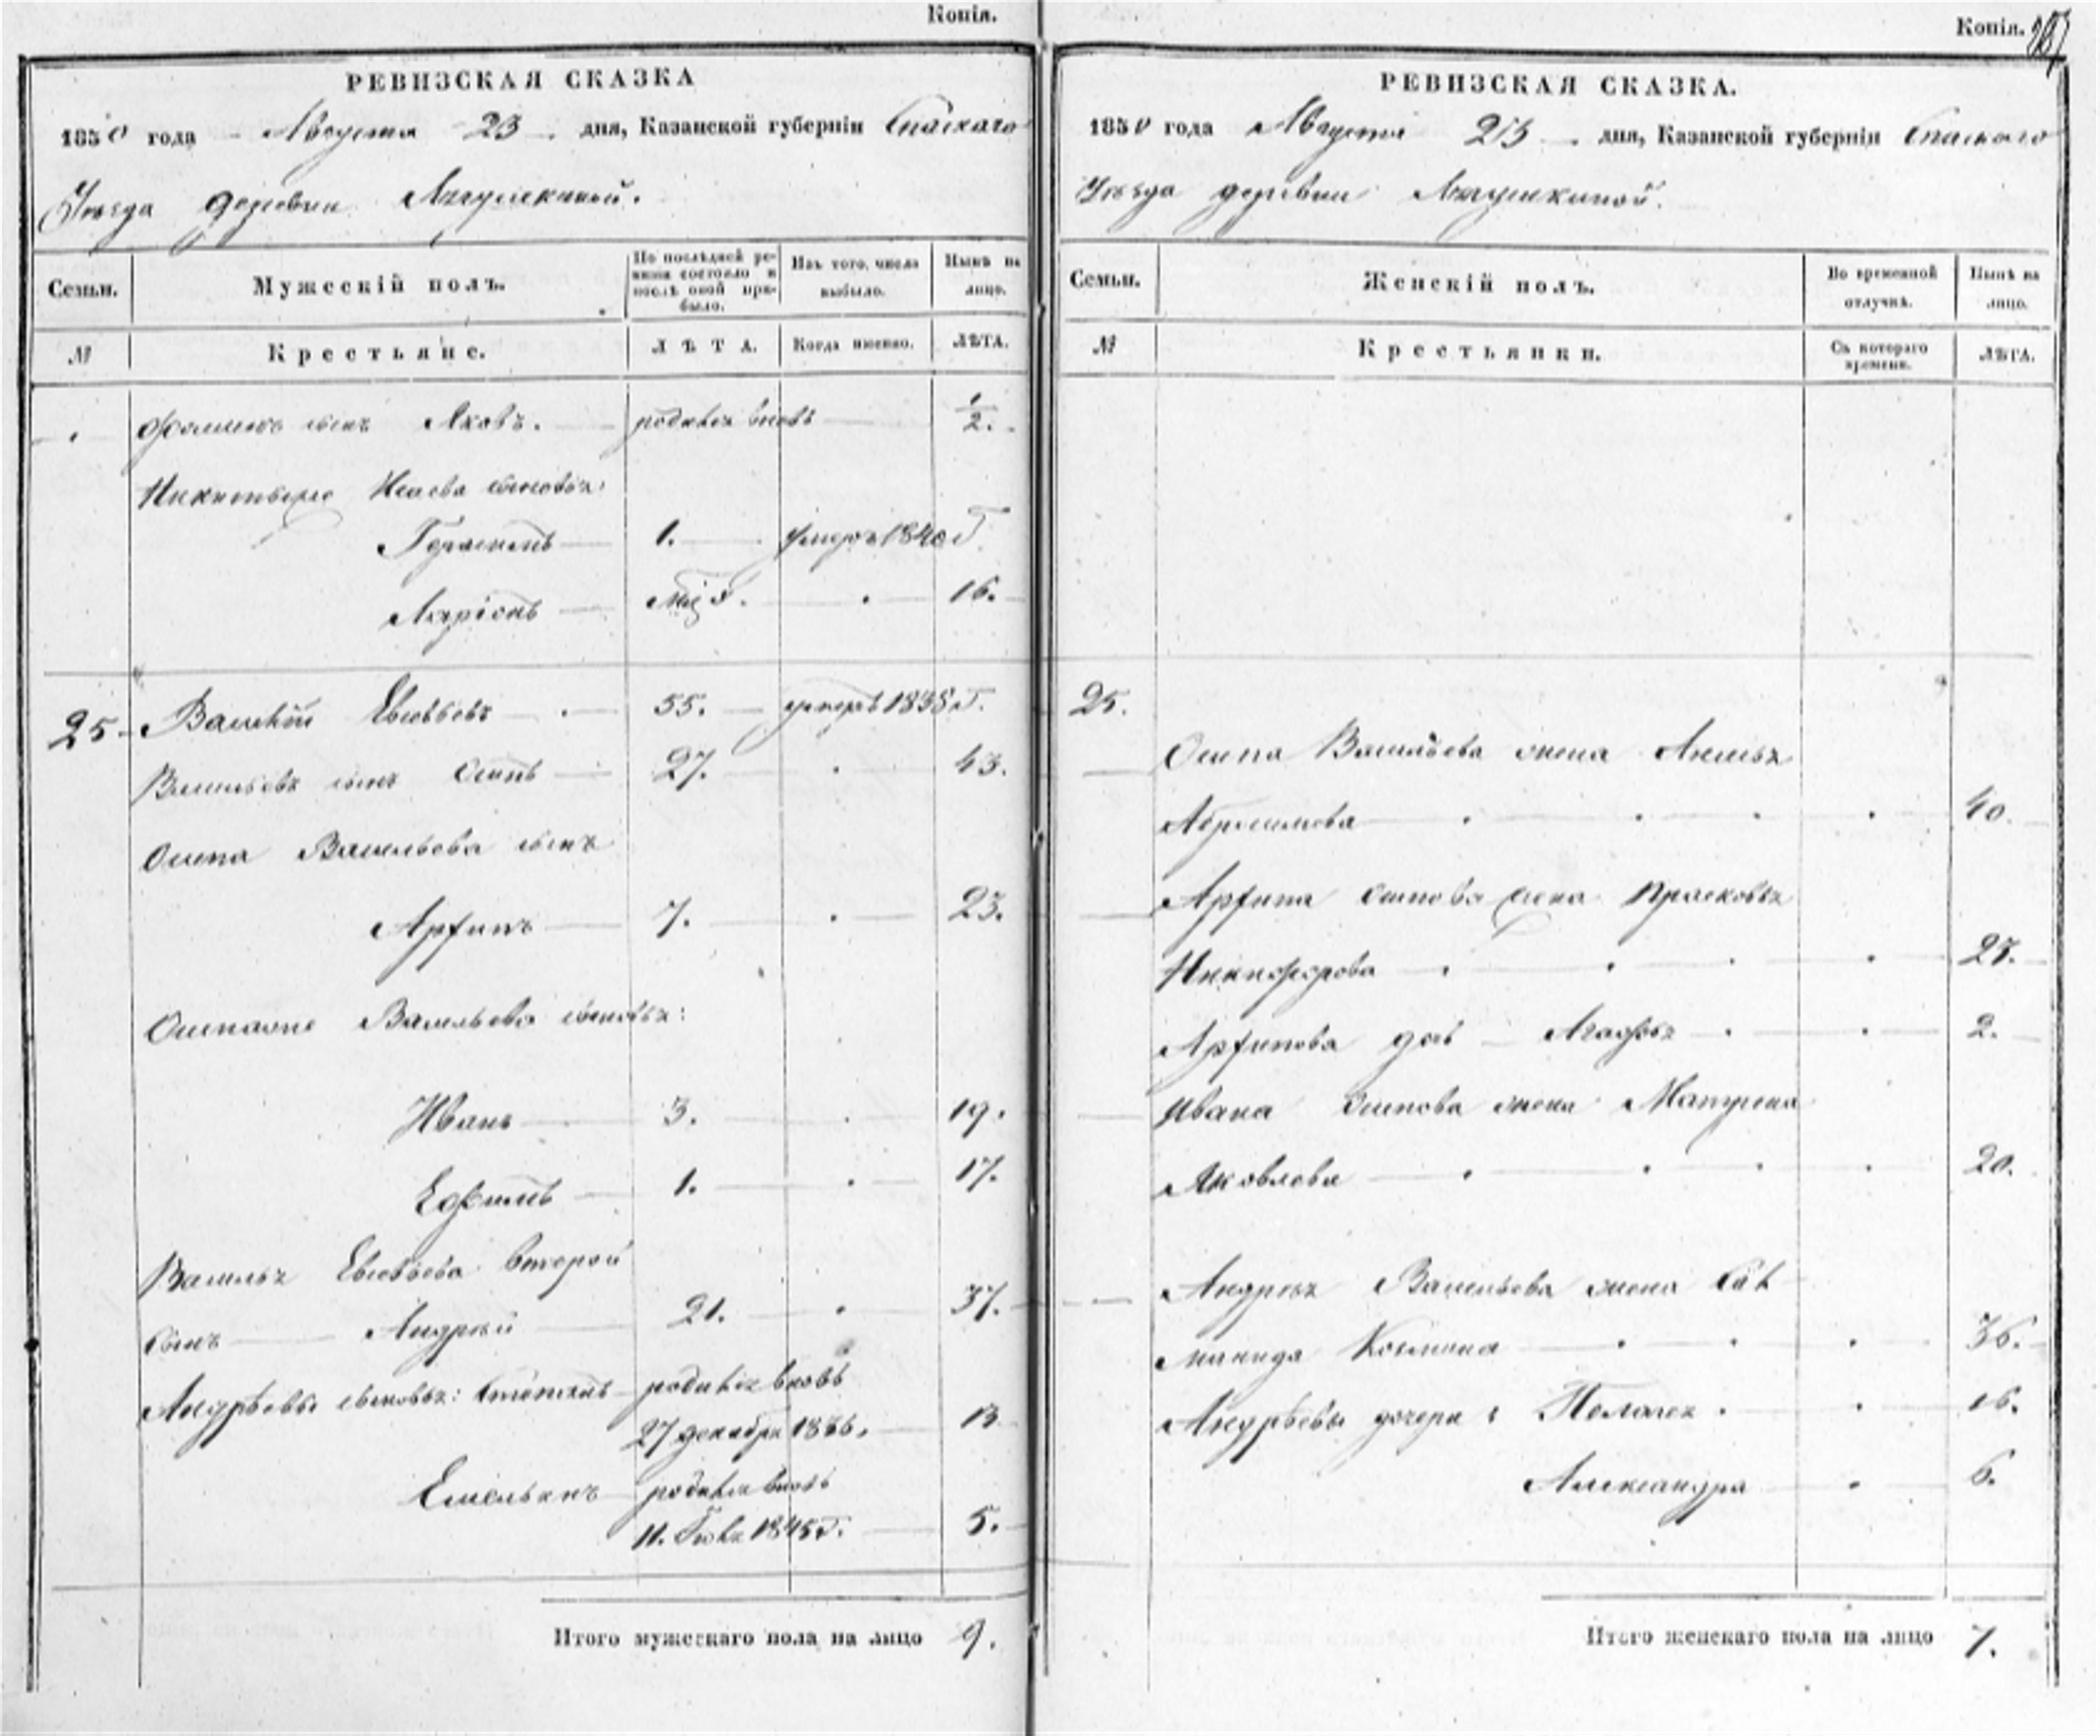 Копія.
РЕВИЗСКАЯ СКАЗКА
1850 года Августа 23 дня, Казанской губерніи Спаскаго
Уѣзда деревни
Семьи.
Мужескій полъ.
По послѣдней ре-
визіи состояло и
послѣ оной при-
было.
Изъ того числа
выбыло.
Нынѣ на
лицо.
№
Крестьяне.
ЛѢТА.
Когда именно.
ЛѢТА.
сынъ Яковъ. родился вновь 1/2.
Исаева сыновья:
Герасимъ 1. умеръ 1840 г.
Ларіонъ 16.
25 Василій Евсѣевъ 55. умеръ 1838 г.
Васильевъ сынъ Осипъ 27. 43.
Осипа Васильева сынъ
Архипъ 7. 23.
Осипа Васильева сыновья:
Иванъ 3. 19.
Ефимъ 1. 17.
Василья Евсѣева второй
сынъ Андрей 21. 37.
Андрѣевы сыновья: Степанъ родился вновь
27 декабря 1836. 13
Емельянъ родился вновь
11. 1845 г. 5.
Итого мужескаго пола на лицо 9.
Копія.
РЕВИЗСКАЯ СКАЗКА.
1850 года Августа 23 дня, Казанской губерніи Спаскаго
Уѣзда деревни
Семьи.
Женскій полъ.
Во временной
отлучкѣ.
Нынѣ на
лицо.
№
Крестьянки.
Съ котораго
времени.
ЛѢТА.
25.
Осипа Васильева жена
Абросимова 40.
Архипа Осипова жена Прасковья
Никифорова 27.
Архипова дочь Агафья 2.
Ивана Осипова жена Матрена
Яковлева 20.
Андрея Васильева жена
Козмина 36.
Андрѣевы дочери: Пелагея 16.
Александра 6.
Итого женскаго пола на лицо 7.